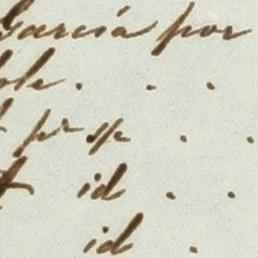 García por
ole . . .
pr s/c . .
id . .
id .